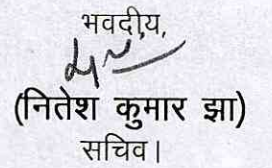 भवदीय,
(नितेश कुमार झा)
सचिव।